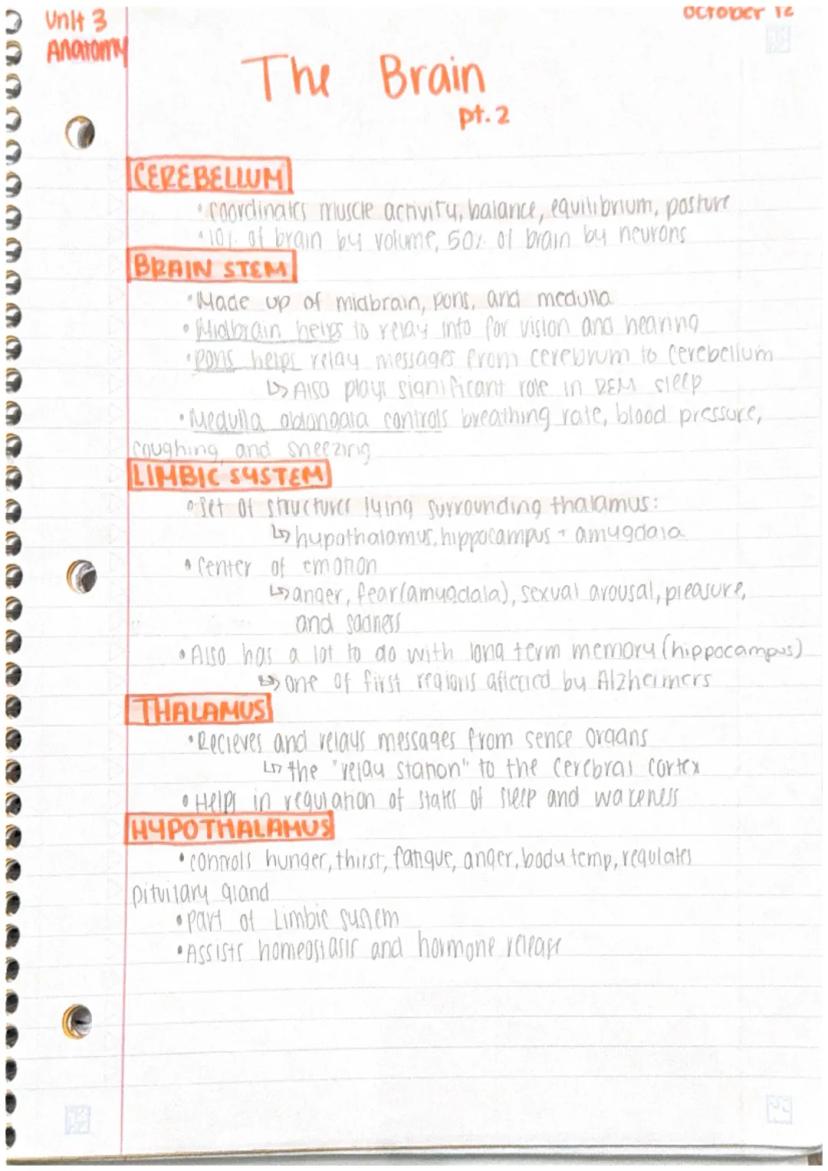 Unit 3
October 12
Anatomy
The Brain
pt. 2
CEREBELLUM
• coordinates muscle activity, balance, equilibrium, posture
• 10% of brain by volume, 50% of brain by neurons
BRAIN STEM
• Made up of midbrain, pons, and medulla
• Midbrain helps to relay info for vision and hearing
• Pons helps relay messages from cerebrum to cerebellum
↳ Also plays significant role in REM sleep
• Medulla oblongata controls breathing rate, blood pressure,
coughing, and sneezing
LIMBIC SYSTEM
• Set of structures lying surrounding thalamus:
↳ hypothalamus, hippocampus + amygdala
• center of emotion
↳ anger, fear (amygdala), sexual arousal, pleasure,
and sadness
• Also has a lot to do with long term memory (hippocampus)
↳ one of first regions affected by Alzheimers
THALAMUS
• Recieves and relays messages from sense organs
↳ the "relay station" to the cerebral cortex
• Helps in regulation of states of sleep and wakeness
HYPOTHALAMUS
• controls hunger, thirst, fatigue, anger, body temp, regulates
pituitary gland
• part of Limbic system
• Assists homeostasis and hormone release